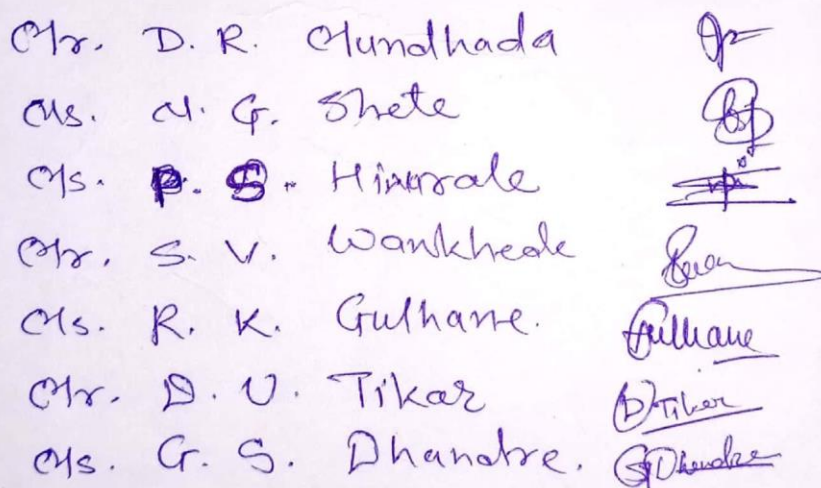 Mr. D. R. Mundhada
Ms. N. G. Shete
Ms. P. S. Himrale
Mr. S. V. Wankhede
Ms. R. K. Gulhane. Gulhane
Mr. D. U. Tikar D Tikar
Ms. G. S. Dhandre. GDhandre